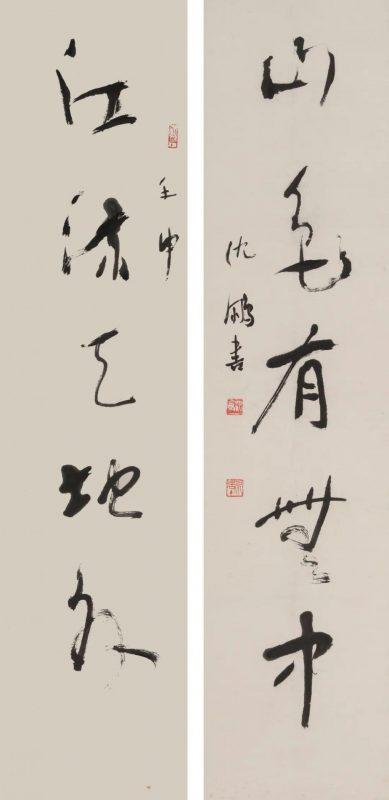 江流天地外
壬申
山色有無中
沈鵬書